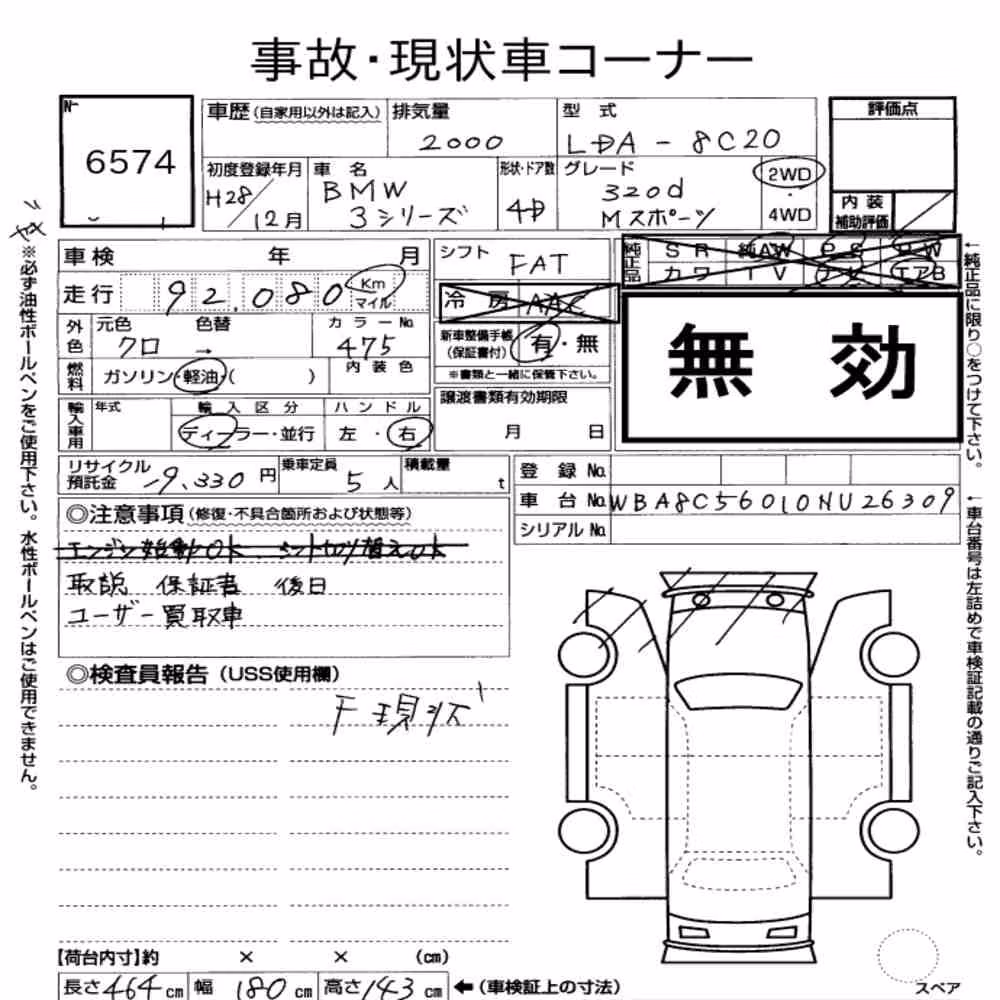 事故・現状車コーナー
№
6574
車歴(自家用以外は記入)
排気量
2000
型式
LDA - 8C20
評価点
初度登録年月
H28/12月
車名
BMW
3シリーズ
形状・ドア数
4D
グレード
320d
Mスポーツ
2WD
・
4WD
内装
補助評価
車検 年 月
走行 92,080 Km
マイル
シフト
FAT
純正品
SR 純AW PS PW
カワ TV ナビ エアB
冷房 AAC
外色
元色 色替 カラーNo.
クロ → 475
新車整備手帳
(保証書付)
有・無
※書類と一緒に保管下さい。
無効
燃料
ガソリン・軽油・( )
内装色
輸入車用
年式
輸入区分
ディーラー・並行
ハンドル
左・右
譲渡書類有効期限
月 日
リサイクル
預託金
9,330円
乗車定員
5人
積載量
t
登録No.
車台No. WBA8C56010NU26309
シリアルNo.
◎注意事項(修復・不具合箇所および状態等)
エンジン始動OK シフト切り替えOK
取説 保証書 後日
ユーザー買取車
◎検査員報告(USS使用欄)
現状
【荷台内寸】約 × × (cm)
長さ464cm 幅180cm 高さ143cm ←(車検証上の寸法)
スペア
※必ず油性ボールペンをご使用下さい。水性ボールペンはご使用できません。
←純正品に限り○をつけて下さい。
←車台番号は左詰めで車検証記載の通りご記入下さい。